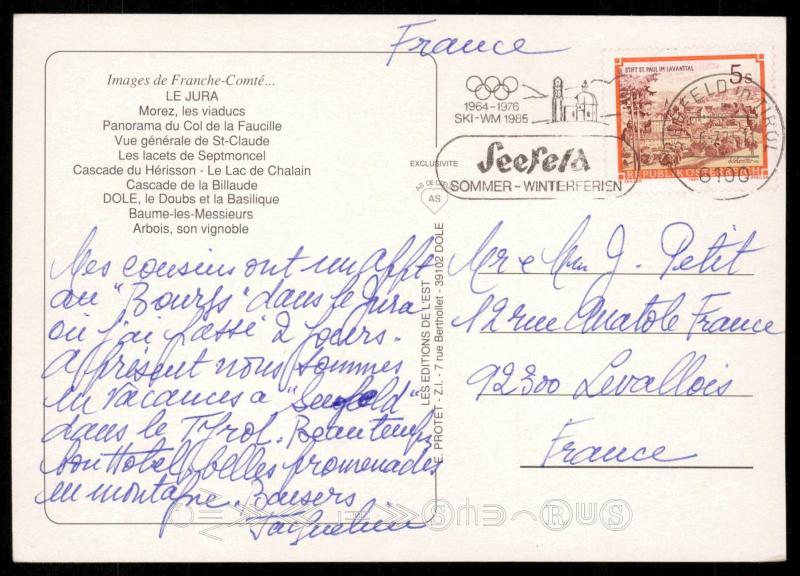 France
Images de Franche-Comté...
LE JURA
Morez, les viaducs
Panorama du Col de la Faucille
Vue générale de St-Claude
Les lacets de Septmoncel
Cascade du Hérisson - Le Lac de Chalain
Cascade de la Billaude
DOLE, le Doubs et la Basilique
Baume-les-Messieurs
Arbois, son vignoble
EXCLUSIVITE
AS DE CŒUR
AS
LES EDITIONS DE L'EST
E. PROTET - Z.I. - 7 rue Berthollet - 39102 DOLE
1964-1976
SKI-WM 1985
Seefeld
SOMMER-WINTERFERIEN
STIFT ST. PAUL IM LAVANTTAL
5s
REPUBLIK ÖSTERREICH
SEEFELD IN TIROL
6100
Mes cousins ont un appt
au "Bourgs" dans le Jura
où j'ai passé 2 jours.
A présent nous sommes
en vacances à "Seefeld"
dans le Tyrol. Beau temps
bon Hotel, belles promenades
en montagne. Baisers
Jacqueline
Mr & Mme J. Petit
12 rue Anatole France
92300 Levallois
France